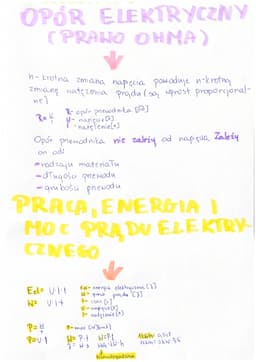 OPÓR ELEKTRYCZNY
(PRAWO OHMA)
n-krotna zmiana napięcia powoduje n-krotną
zmianę natężenia prądu (są wprost proporcjonal-
ne)
R - opór przewodnika [Ω]
U - napięcie [V]
I - natężenie [A]
Opór przewodnika nie zależy od napięcia. Zależy
on od:
- rodzaju materiału
- długości przewodu
- grubości przewodu
PRACA, ENERGIA I
MOC PRĄDU ELEKTRY-
CZNEGO
Eel= U·I·t
W= U·I·t
Eel - energia elektryczna [J]
W - praca prądu [J]
t - czas [s]
U - napięcie [V]
I - natężenie [A]
P=U·I
W=P·t